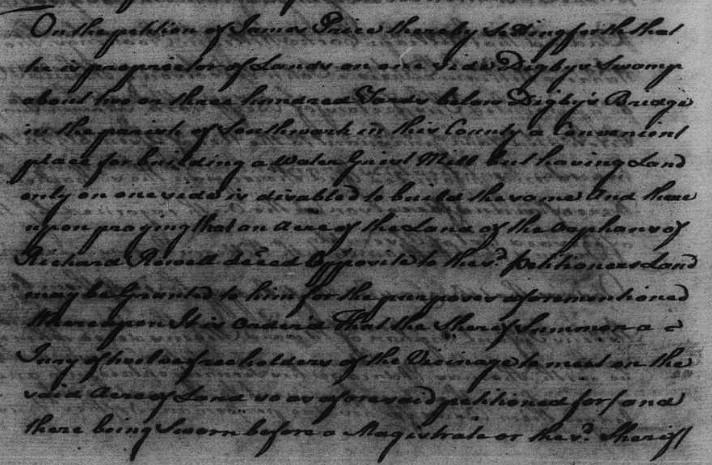 On the petition of James Price thereby Setting forth that
he is proprietor of Lands on one side Digby's Swamp
about two or three hundred Yards below Digby's Bridge
in the parish of Southwark in this County a Convenient
place for building a Water Grist Mill but having Land
only on one side is disabled to build the same And there
upon praying that an Acre of the Land of the Orphans of
Richard Rowell deced Opposite to the sd. petitioners Land
may be Granted to him for the purposes aforementioned
Whereupon It is Ordered That the Sherif Summon a
Jury of twelve freeholders of the Vicinage to meet on the
said Acre of Land so as aforesaid petitioned for / and
there being Sworn before a Magistrate or the sd. Sheriff